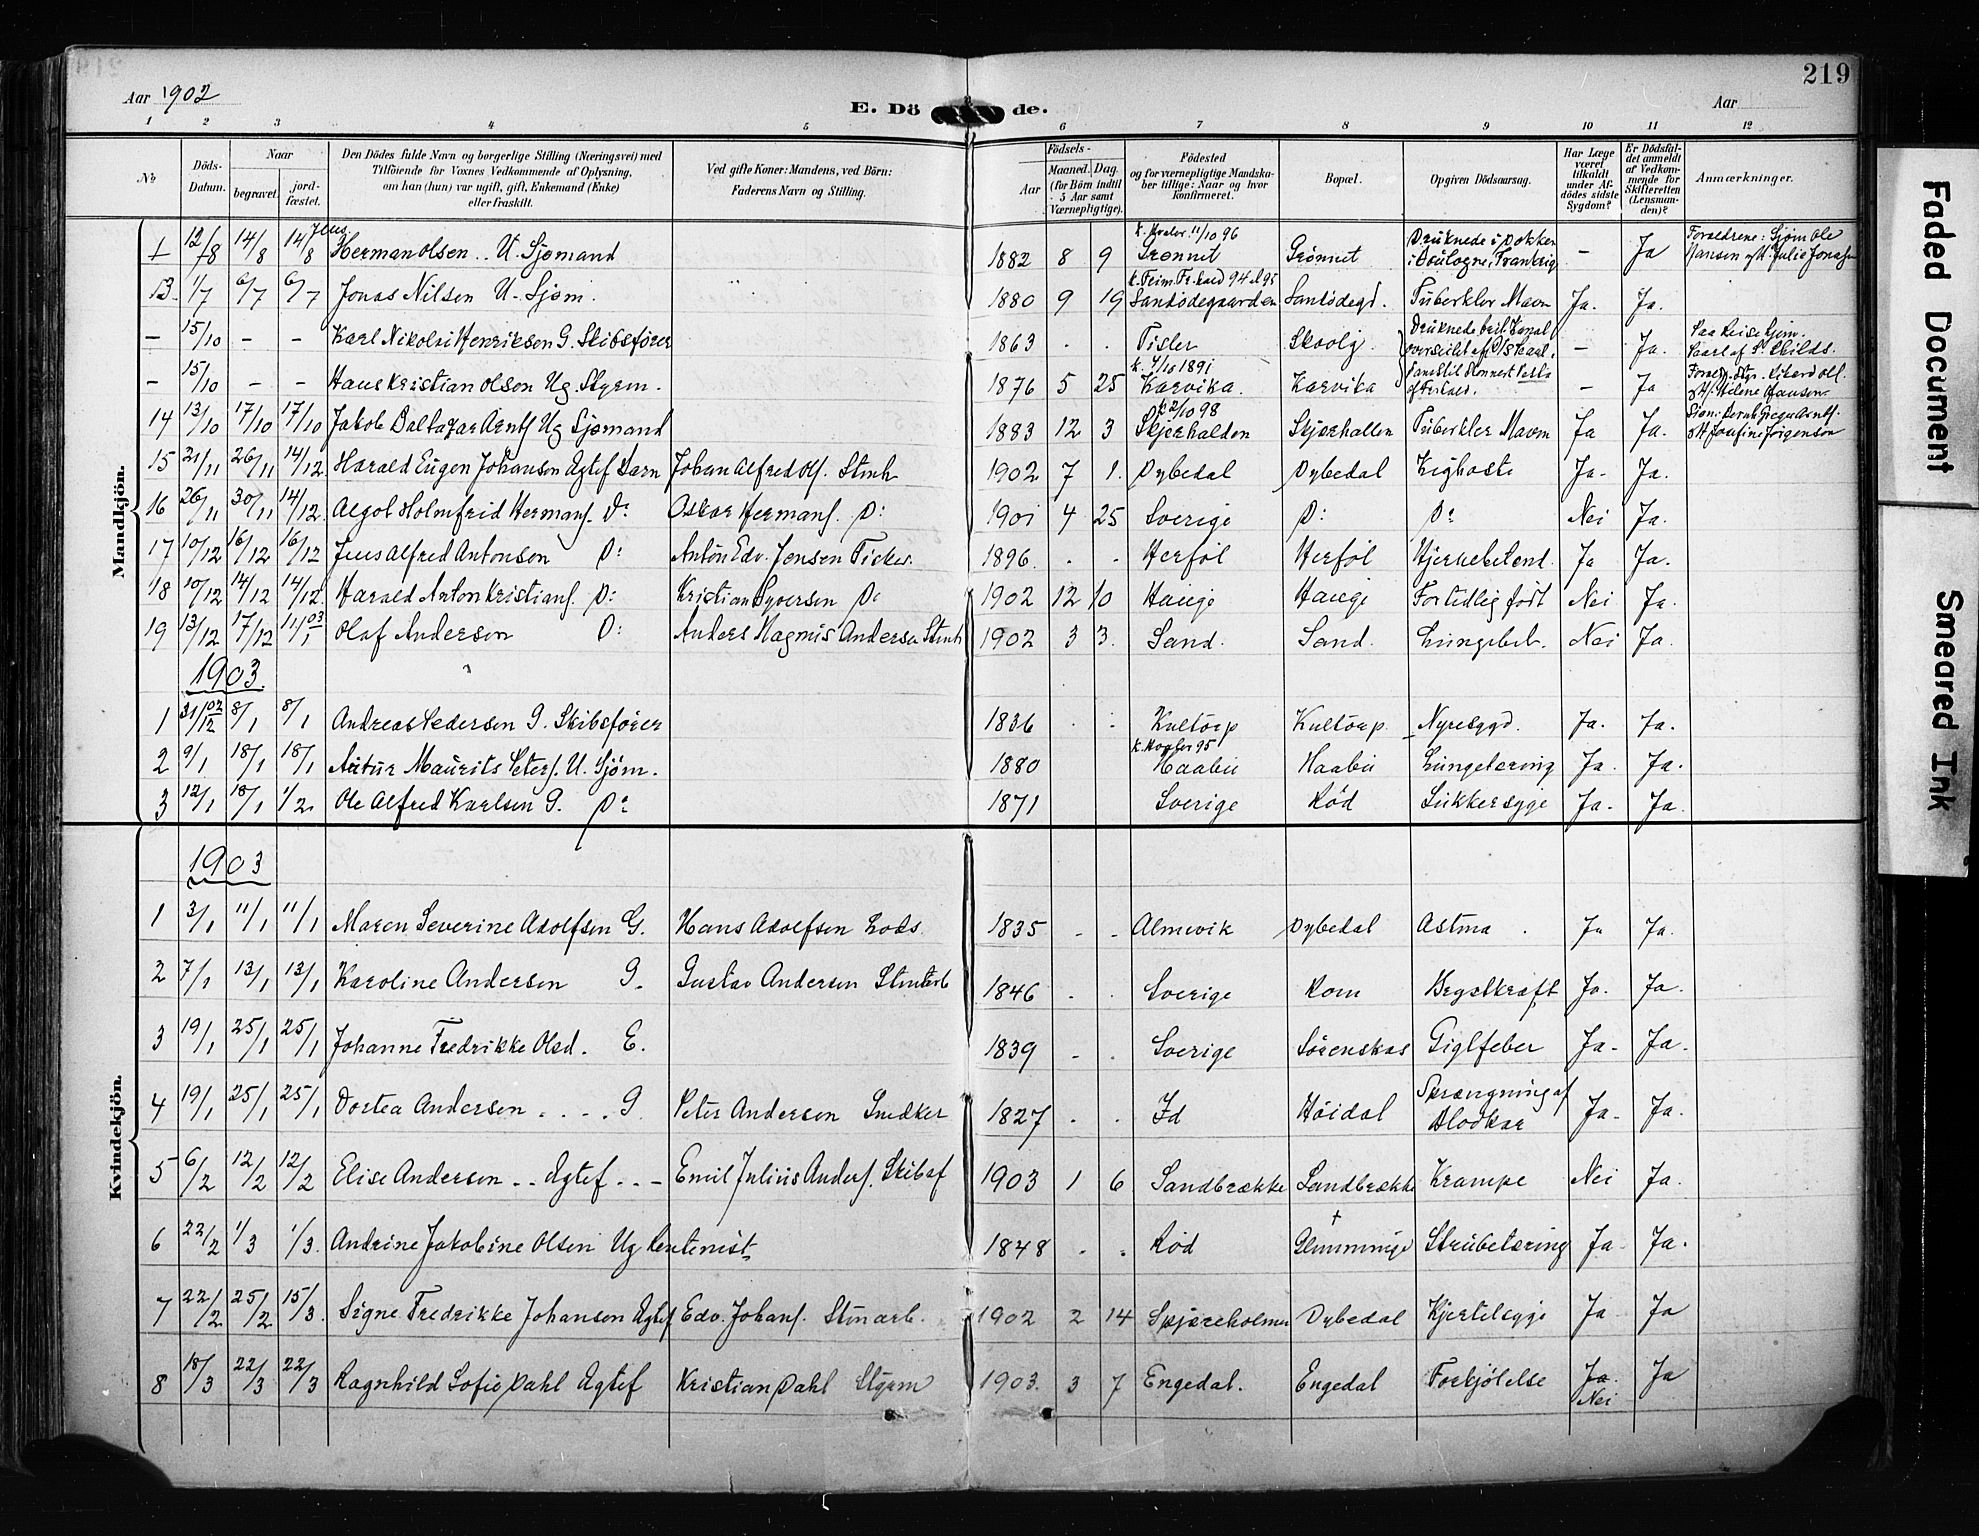 219
Aar 1902
E. Dö de.
Aar
1 2 3 4 5 6 7 8 9 10 11 12
No
Döds-Datum.
Naar
begravet.
jord-fæstet.
Den Dödes fulde Navn og borgerlige Stilling (Næringsvei) med
Tilföiende for Voxnes Vedkommende af Oplysning,
om han (hun) var ugift, gift, Enkemand (Enke)
eller fraskilt.
Ved gifte Koner: Mandens, ved Börn:
Faderens Navn og Stilling.
Födsels-
Aar
Maaned. Dag.
(for Börn indtil
5 Aar samt
Værnepligtige).
Födested
og for værnepligtige Mandska-
ber tillige: Naar og hvor
konfirmeret.
Bopæl.
Opgiven Dödsaarsag.
Har Læge
været
tilkaldt
under Af-
dödes sidste
Sygdom?
Er Dödsfal-
det anmeldt
af Vedkom-
mende for
Skifteretten
(Lensman-
den)?
Anmærkninger.
Mandkjön.
12/8 14/8 14/8 Jens Herman Olsen .. U. Sjømand 1882 8 9 k. Hvaler 11/10 96 Grønnet Grønnet Druknede i Dokken i Boulogne, Frankrig — Ja Forældrene: Sjøm Ole Hansen og H. Julie
13. 1/7 6/7 6/7 Jonas Nilsen U. Sjøm. 1880 9 19 Sandødegaarden Sandødegd. Tuberkler Maven Ja. Ja.
— 15/10 — — Karl Nikolai Henriksen G. Skibsfører 1863 . . Tisler Skovlg Druknede — Ja.
— 15/10 — — Hans Kristian Olsen Ug. Styrm. 1876 5 25 k. 4/10 1891 Kærvika. Kærvika — Ja
14 13/10 17/10 17/10 Jakob Baltazar Arntf. Ug Sjømand 1883 12 3 k 2/10 98 Skjærhalden Skjærhallen Tuberkler Maven Ja Ja. og H Josefine Jørgensen
15 21/11 26/11 14/12. Harald Eugen Johansen Egtef Barn Johan Alfred Olf. Stenh 1902 7 1. Dybedal Dybedal Kighoste Ja. Ja.
16 26/11 30/11 14/12. Algot Holmfrid Hermanf. D: Oskar Hermanf. D: 1901 4 25 Sverige D: D: Nei Ja.
17 10/12 16/12 16/12 Jens Alfred Antonsen D: Anton Edv. Jensen Fisker. 1896. . . Herføl Herføl Hjernebetend. Ja Ja.
18 10/12 14/12 14/12. Harald Anton Kristianf. D: Kristian Syversen D: 1902 12 10 Hauge Hauge For tidlig født Nei Ja.
19 13/12 17/12 11/1 03 Olaf Andersen D: Anders Magnus Andersen Stenh 1902 3 3. Sand. Sand. Lungebet. Nei Ja.
1903.
1 31/12 02 8/1 8/1 Andreas Pedersen G. Skibsfører 1836 . . Kultorp Kultorp. Nyresygd. Ja. Ja.
2 9/1 18/1 18/1 Artur Maurits Peterf. U. Sjöm. 1880 k. Hvaler 95 Haabu Haabu Lungetæring Ja. Ja.
3 12/1 18/1 1/2. Ole Alfred Karlsen G. D: 1871 Sverige Rød Sukkersyge Ja. Ja.
Kvindekjön.
1903
1 3/1 11/1 11/1 Maren Severine Adolfsen G. Hans Adolfsen Lods. 1835 . . Almevik Dybedal Astma . Ja Ja.
2 7/1 13/1 13/1 Karoline Andersen G. Gustav Andersen Stenarb 1846 . . Sverige Rom Brystkræft Ja. Ja.
3 19/1 25/1 25/1 Johanne Fredrikke Olsd. E. 1839 . . Sverige Sørenskas Gigtfeber Ja. Ja.
4 19/1 25/1 25/1 Dortea Andersen .... G. Peter Andersen Snedker 1827 . . Id Høidal Sprængning af Blodkar Ja. Ja.
5 6/2 12/2 12/2 Elise Andersen .. Egtef .. — Emil Julius Anderf. Skibsf 1903 1 6 Sandbrække Sandbrække Krampe Nei Ja.
6 22/2 1/3 1/3. Andrine Jakobine Olsen Ug Rentenist 1848 . . Rød Glemminge Strubetæring Ja. Ja.
7 22/2 25/2 15/3. Signe Fredrikke Johansen Egtef Edv. Johanf. Stenarb. 1902 2 14 Skjæreholmen Dybedal Kjertelsyge Ja Ja
8 18/3 22/3 22/3 Ragnhild Sofie Dahl Egtef Kristian Dahl Styrm 1903. 3 7 Engedal. Engedal Forkjölelse Ja. Nei Ja
Faded Document
Smeared Ink